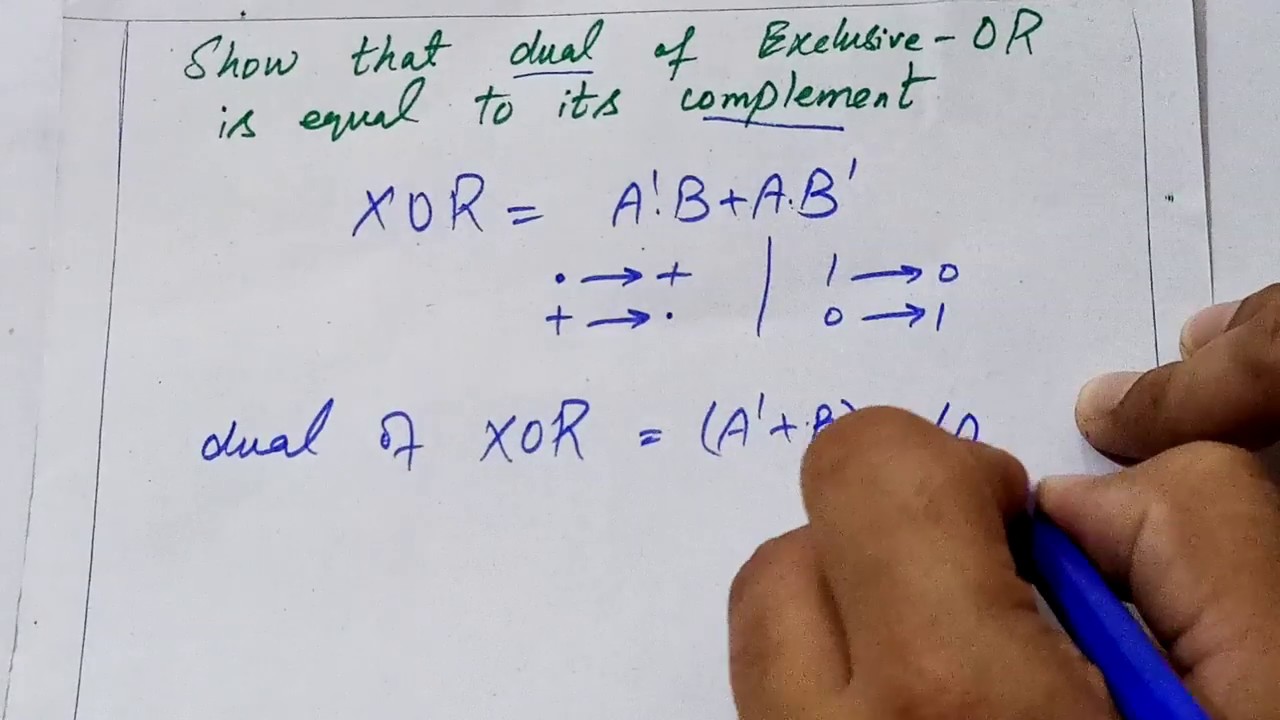 Show that dual of Exclusive-OR
is equal to its complement
XOR = A'.B+A.B'
. → + | 1 → 0
+ → . | 0 → 1
dual of XOR = (A'+B) (A